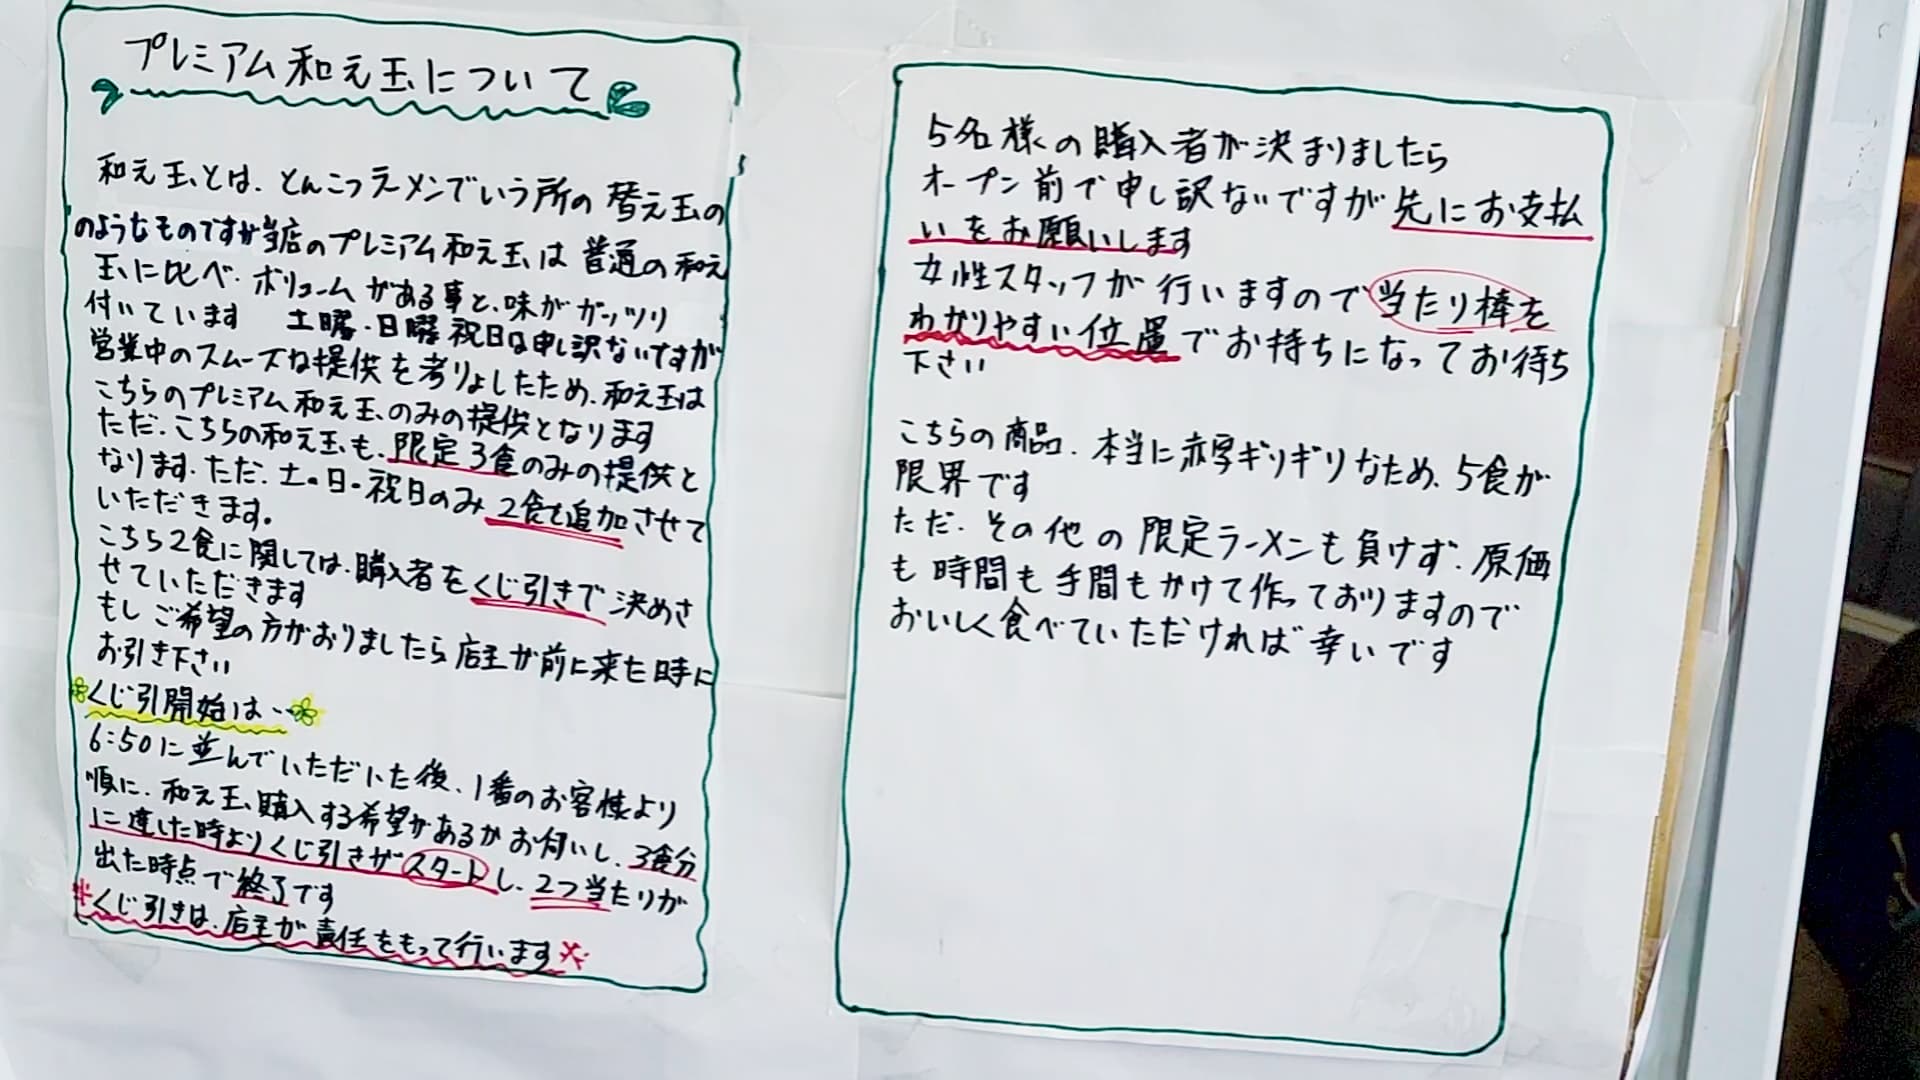 プレミアム和え玉について
和え玉とは、とんこつラーメンでいう所の替え玉の
のようなものですが当店のプレミアム和え玉は普通の和え
玉に比べ、ボリュームがある事と、味がガッツリ
付いています 土曜・日曜 祝日は申し訳ないですが
営業中のスムーズな提供を考りょしたため、和え玉は
こちらのプレミアム和え玉のみの提供となります
ただ、こちらの和え玉も、限定3食のみの提供と
なります、ただ、土。日。祝日のみ 2食も追加させて
いただきます。
こちら2食に関しては、購入者をくじ引きで決めさ
せていただきます
もしご希望の方がおりましたら店主が前に来た時に
お引き下さい
くじ引開始は‥
6:50に並んでいただいた後、1番のお客様より
順に、和え玉購入する希望があるかお伺いし、3食分
に達した時よりくじ引きがスタートし、2つ当たりが
出た時点で終了です
※くじ引きは、店主が責任をもって行います※
5名様の購入者が決まりましたら
オープン前で申し訳ないですが先にお支払
いをお願いします
女性スタッフが行いますので当たり棒を
わかりやすい位置でお持ちになってお待ち
下さい
こちらの商品、本当に赤字ギリギリなため、5食が
限界です
ただ、その他の限定ラーメンも負けず、原価
も時間も手間もかけて作っておりますので
おいしく食べていただければ幸いです